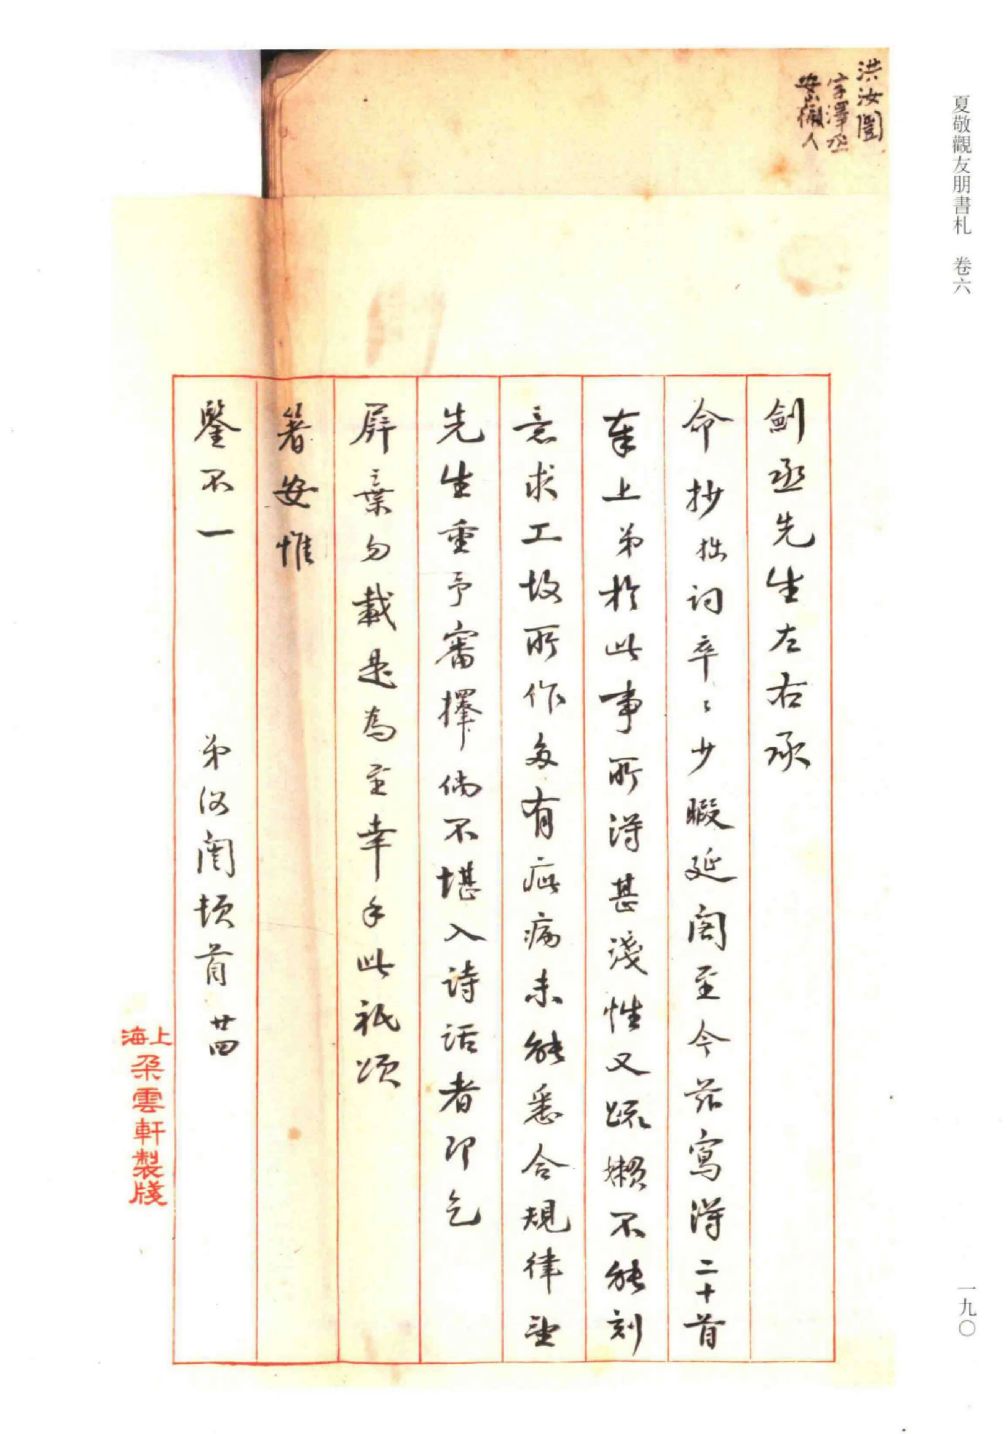 夏敬觀友朋書札 卷六
一九〇
洪汝闓
字澤丞
安徽人
劍丞先生左右承
命抄拙詞卒〻少暇延閣至今茲寫得二十首
奉上弟於此事所得甚淺性又疏懶不能刻
意求工故所作多有疵病未能悉合規律望
先生重予審擇倘不堪入詩話者即乞
屏棄勿載是為至幸手此祇頌
箸安惟
鑒不一 弟汝闓頓首 廿四
上海
朵雲軒製牋